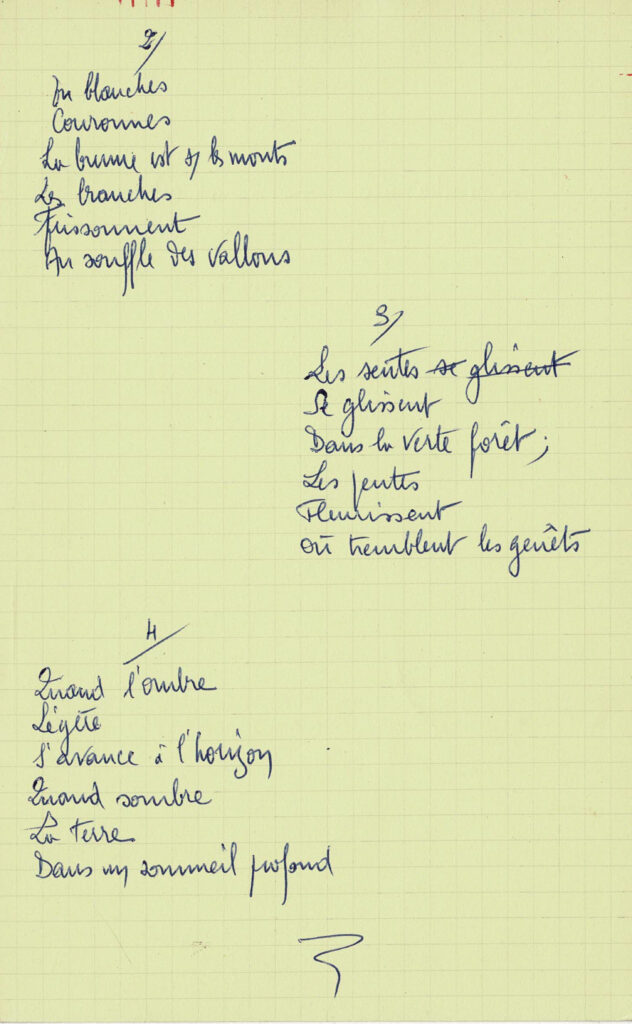 2/
En blanches
Couronnes
La brume est s/ les monts
Les branches
Frissonnent
Au souffle des vallons
3/
Les sentes se glissent
Se glissent
Dans la verte forêt ;
Les pentes
Fleurissent
Où tremblent les genêts
4/
Quand l'ombre
Légère
S'avance à l'horizon
Quand sombre
La terre
Dans un sommeil profond